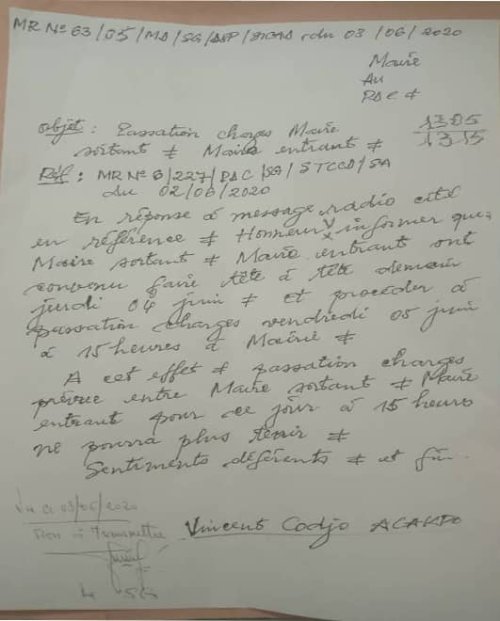 MR Nº 63/05/MD/SG/DSP/STCAD du 03/06/2020
Maire
Au
PDC #
Objet : Passation charges Maire
sortant # Maire entrant #
1305
1315
Réf : MR Nº 6/227/PDC/SG/STCCD/SA
du 02/06/2020
En réponse à message radio cité
en référence # Honneur V/ informer que
Maire sortant # Maire entrant ont
convenu faire tête à tête demain
jeudi 04 juin # et procéder à
passation charges vendredi 05 juin
à 15 heures à Mairie #
A cet effet # passation charges
prévue entre Maire sortant # Maire
entrant pour ce jour à 15 heures
ne pourra plus tenir #
Sentiments déférents # et fin.
Vu ce 03/06/2020
Bon à Transmettre
Vincent Codjo ACAKPO